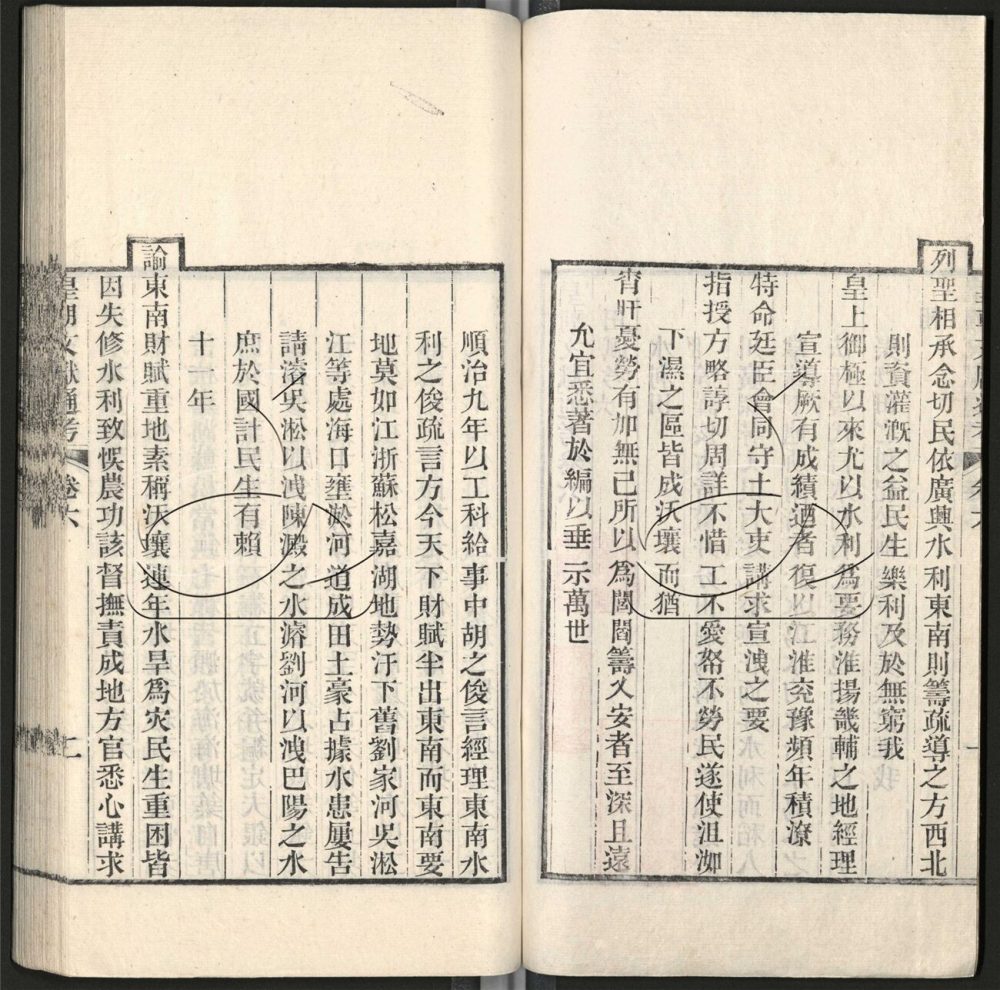 列聖相承念切民依廣興水利東南則籌疏導之方西北
則資灌溉之益民生樂利及於無窮我
皇上御極以來尤以水利為要務淮揚畿輔之地經理
宣導厥有成績邇者復以江淮兗豫頻年積潦
特命廷臣會同守土大吏講求宣洩之要
指授方略諄切周詳不惜工不愛帑不勞民遂使沮洳
下濕之區皆成沃壤而猶
宵旰憂勞有加無已所以為閭閻籌久安者至深且遠
允宜悉著於編以垂示萬世
順治九年以工科給事中胡之俊言經理東南水
利之俊疏言方今天下財賦半出東南而東南要
地莫如江浙蘇松嘉湖地勢汙下舊劉家河吳淞
江等處海口壅淤河道成田土豪占據水患屢告
請濬吳淞以洩陳澱之水濬劉河以洩巴陽之水
庶於國計民生有賴
十一年
諭東南財賦重地素稱沃壤連年水旱為灾民生重困皆
因失修水利致悞農功該督撫責成地方官悉心講求
皇朝文獻通考 卷六 二